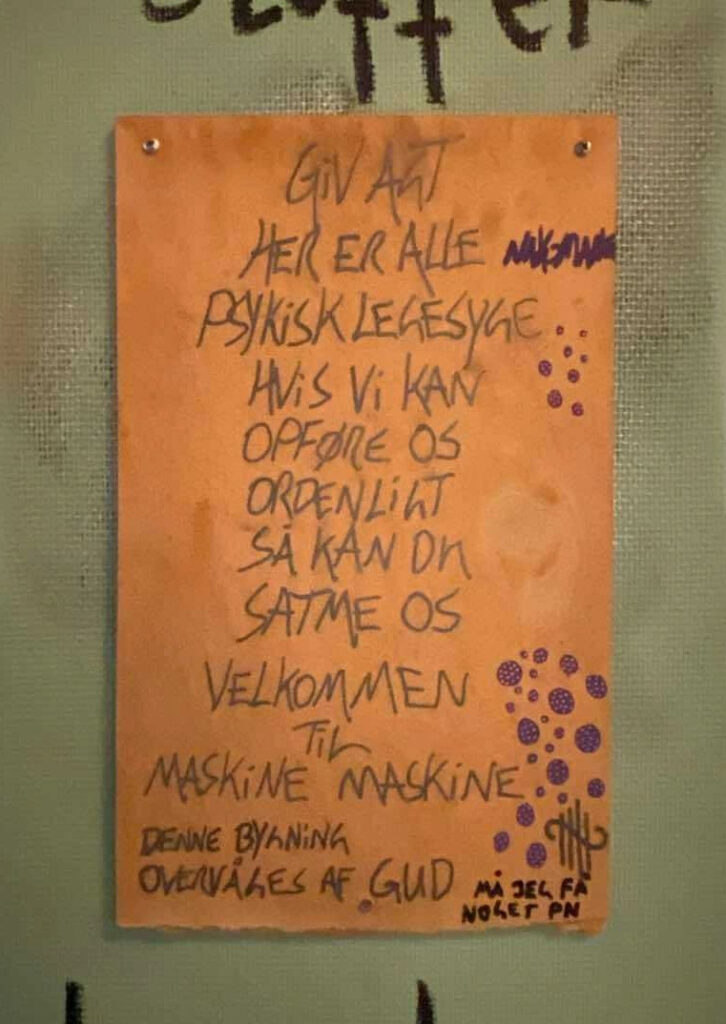 Stoffer
GIV AGT
HER ER ALLE
PSYKISK LEGESYGE
HVIS VI KAN
OPFØRE OS
ORDENLIGT
SÅ KAN DU
SATME OS
VELKOMMEN
TIL
MASKINE MASKINE
DENNE BYGNING
OVERVÅGES AF GUD
MÅ JEG FÅ
NOGET PN